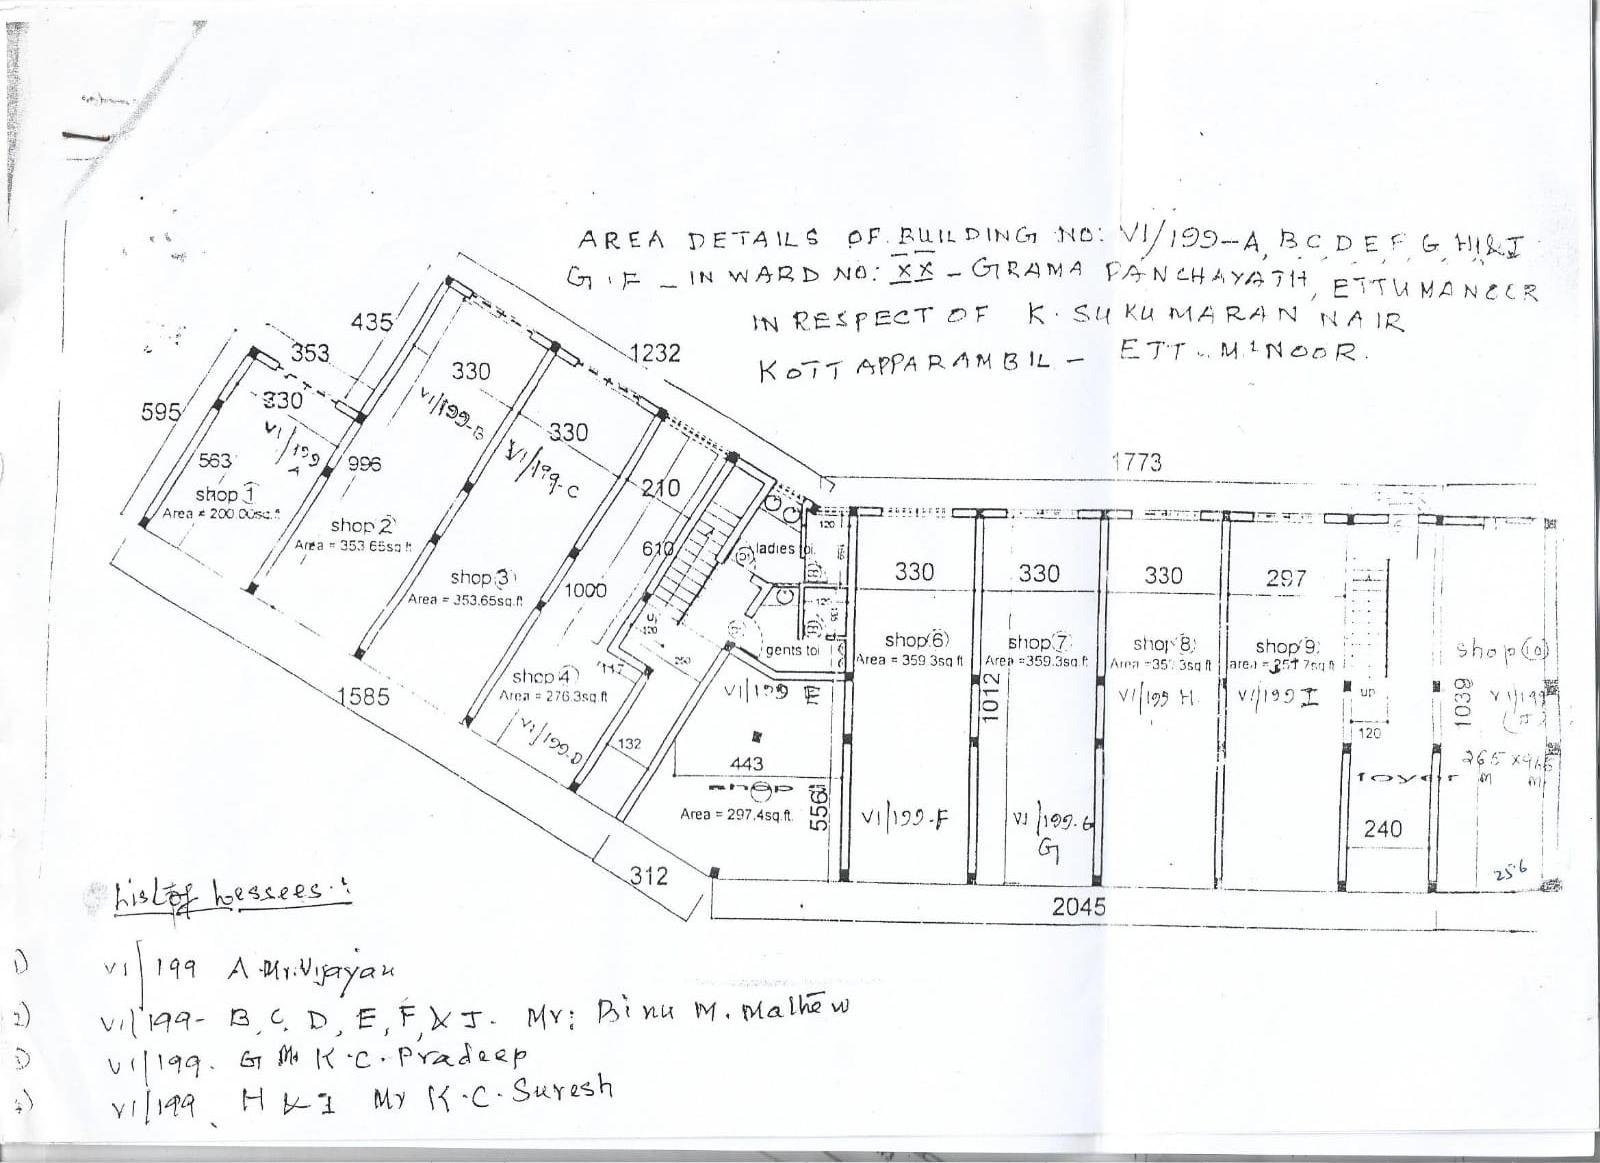 AREA DETAILS OF BUILDING NO: VI/199-A, B C, D E, F, G, H I & J
G.F - IN WARD NO: XX - GRAMA PANCHAYATH, ETTUMANOOR
IN RESPECT OF K. SUKUMARAN NAIR
KOTTAPPARAMBIL -
435
353
1232
330
595
330
VI/199-B
330
VI/199 A
VI/199-C
563
996
1773
210
shop 1
Area = 200.00sq.ft
shop 2
Area = 353.65sq.ft
120
610
ladies toi.
330
330
330
297
shop 3
Area = 353.65sq.ft
1000
120
gents toi
shop 6
Area = 359.3sq.ft
shop 7
Area =359.3sq.ft
shop 8
shop 9
shop 10
shop 4
Area = 276.3sq.ft
VI/199 E
VI/199-D
1585
1012
VI/199 H
VI/199 I
up
120
1039
VI/199
(J)
132
443
foyer
265 x
m m
shop
Area = 297.4sq.ft.
556
VI/199-F
VI/199-G
G
240
312
256
2045
List of Lessees :
1) VI/199 A Mr. Vijayan
2) VI/199- B, C, D, E, F, & J. Mr: Binu M. Mathew
VI/199. G Mr K.C. Pradeep
VI/199. H & I Mr K.C. Suresh